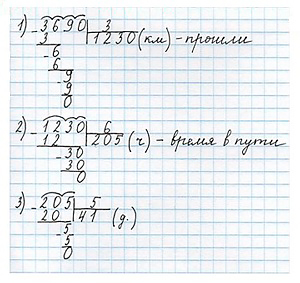 1) -3690|3
3 1230 (км) - прошли
-6
6
-9
9
0
2) -1230|6
12 205 (ч) - время в пути
-30
30
0
3) -205|5
20 41 (д.)
-5
5
0